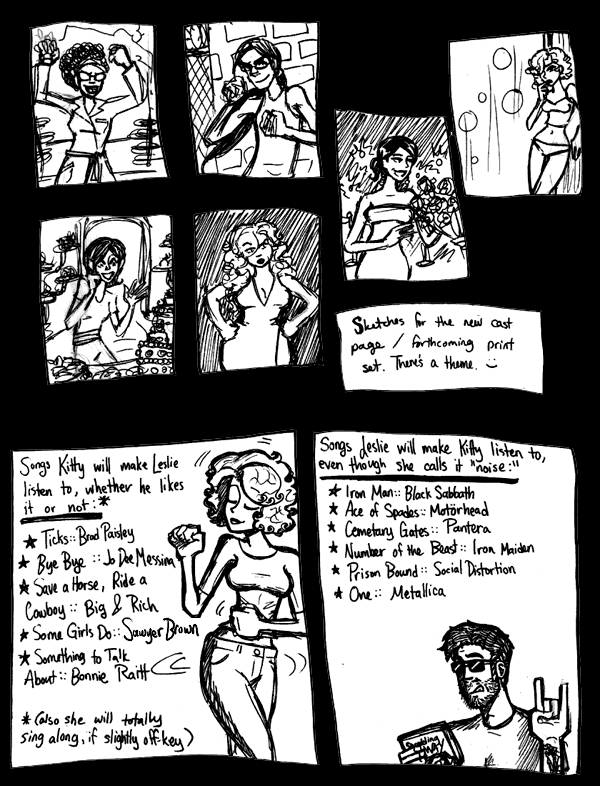 Sketches for the new cast
page / forthcoming print
set. There's a theme. :)
Songs Kitty will make Leslie
listen to, whether he likes
it or not:*
★ Ticks:: Brad Paisley
★ Bye Bye :: Jo Dee Messina
★ Save a Horse, Ride a
Cowboy:: Big & Rich
★ Some Girls Do:: Sawyer Brown
★ Something to Talk
About:: Bonnie Raitt
*(also she will totally
sing along, if slightly off-key)
Songs Leslie will make Kitty listen to,
even though she calls it "noise:"
★ Iron Man:: Black Sabbath
★ Ace of Spades:: Motörhead
★ Cemetary Gates:: Pantera
★ Number of the Beast:: Iron Maiden
★ Prison Bound:: Social Distortion
★ One:: Metallica